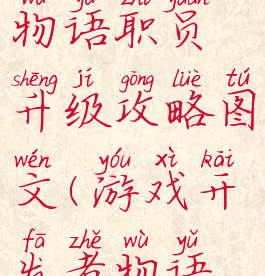 wù yǔ zhí yuán
物语职员
shēng jí gōng lüè tú
升级攻略图
wén yóu xì kāi
文(游戏开
fā zhě wù yǔ
发者物语